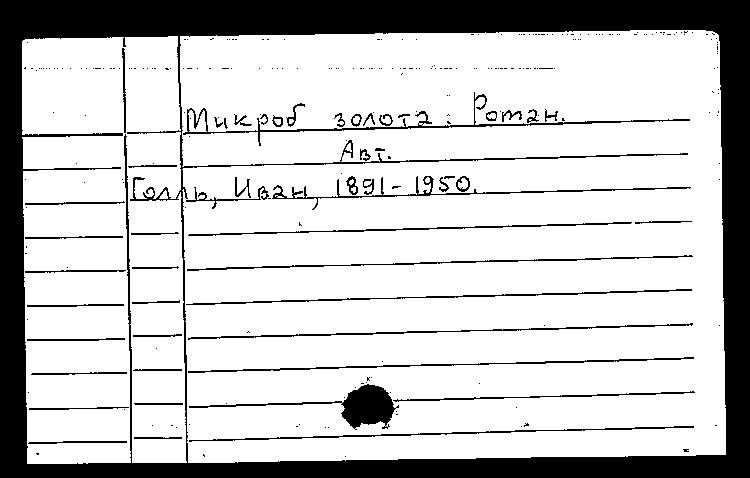 Микроб золота: Роман.
Авт.
Голль, Иван, 1891-1950.